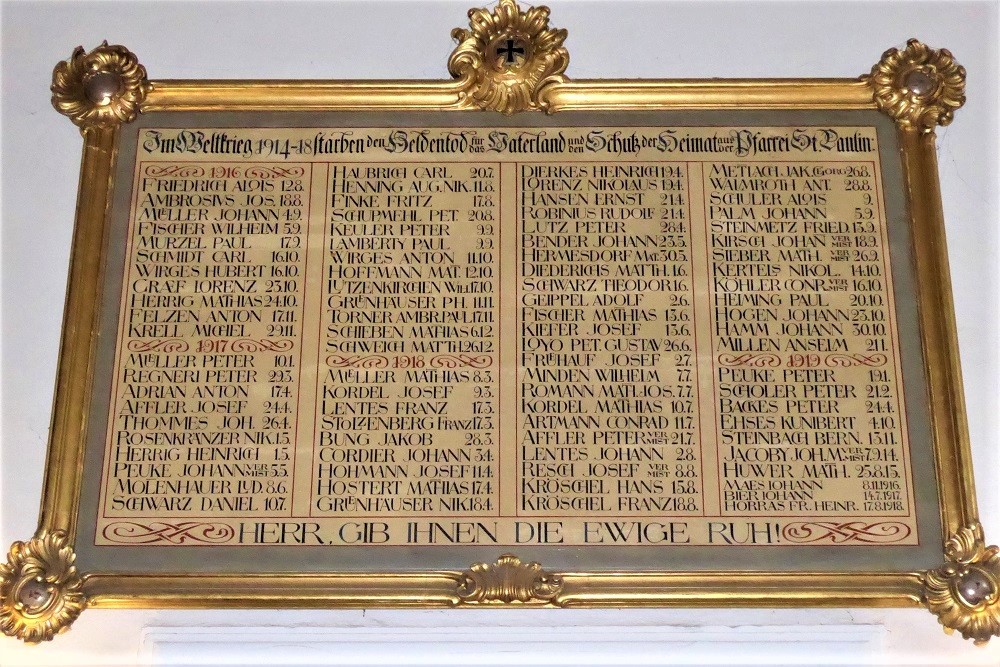 Im Weltkrieg 1914-18 starben den Heldentod für das Vaterland und den Schutz der Heimat aus der Pfarrei St. Paulin:
1916
FRIEDRICH ALOIS 12.8.
AMBROSIUS JOS. 18.8.
MÜLLER JOHANN 4.9.
FISCHER WILHELM 5.9.
MURZEL PAUL 17.9.
SCHMIDT CARL 16.10.
WIRGES HUBERT 16.10.
GRAEF LORENZ 23.10.
HERRIG MATHIAS 24.10.
FELZEN ANTON 17.11.
KRELL MICHEL 29.11.
1917
MÜLLER PETER 10.1.
REGNERI PETER 29.3.
ADRIAN ANTON 17.4.
AFFLER JOSEF 24.4.
THOMMES JOH. 26.4.
ROSENKRÄNZER NIK. 1.5.
HERRIG HEINRICH 1.5.
PEUKE JOHANN VERMIST 5.5.
MOLENHAUER LUD. 8.6.
SCHWARZ DANIEL 10.7.
HAUBRICH CARL 20.7.
HENNING AUG. NIK. 11.8.
FINKE FRITZ 17.8.
SCHUPMEHL PET. 20.8.
KEULER PETER 9.9.
LAMBERTY PAUL 9.9.
WIRGES ANTON 11.10.
HOFFMANN MAT. 12.10.
LÜTZENKIRCHEN WILH. 17.10.
GRÜNHÄUSER PH. 11.11.
TORNER AMBR. PAUL 17.11.
SCHIEBEN MATHIAS 6.12.
SCHWEICH MATTH. 26.12.
1918
MÜLLER MATHIAS 8.3.
KORDEL JOSEF 9.3.
LENTES FRANZ 17.3.
STOLZENBERG FRANZ 17.3.
BUNG JAKOB 28.3.
CORDIER JOHANN 3.4.
HOHMANN JOSEF 11.4.
HOSTERT MATHIAS 17.4.
GRÜNHÄUSER NIK. 18.4.
DIERKES HEINRICH 19.4.
LORENZ NIKOLAUS 19.4.
HANSEN ERNST 21.4.
ROBINIUS RUDOLF 21.4.
LUTZ PETER 28.4.
BENDER JOHANN 23.5.
HERMESDORF MAT. 30.5.
DIEDERICHS MATTH. 1.6.
SCHWARZ THEODOR 1.6.
GEIPPEL ADOLF 2.6.
FISCHER MATHIAS 13.6.
KIEFER JOSEF 13.6.
LOYO PET. GUSTAV 26.6.
FRÜHAUF JOSEF 2.7.
MINDEN WILHELM 7.7.
ROMANN MATH. JOS. 7.7.
KORDEL MATHIAS 10.7.
ARTMANN CONRAD 11.7.
AFFLER PETER VERMIST 21.7.
LENTES JOHANN 2.8.
RESCH JOSEF VERMIST 8.8.
KRÖSCHEL HANS 15.8.
KRÖSCHEL FRANZ 18.8.
METLACH JAK. GEORG 26.8.
WALMROTH ANT. 28.8.
SCHULER ALOIS 9.
PALM JOHANN 5.9.
STEINMETZ FRIED. 13.9.
KIRSCH JOHAN VERMIST 18.9.
SIEBER MATH. VERMIST 26.9.
KERTELS NIKOL. 14.10.
KÖHLER CONR. VERMIST 16.10.
HEIMING PAUL 20.10.
HOGEN JOHANN 23.10.
HAMM JOHANN 30.10.
MILLEN ANSELM 21.1.
1919
PEUKE PETER 19.1.
SCHÖLER PETER 21.2.
BACKES PETER 24.4.
EHSES KUNIBERT 4.10.
STEINBACH BERN. 13.11.
JACOBY JOH. M. VERMIST 7.9.14.
HUWER MATH. 25.8.15.
MAES JOHANN 8.11.1916.
BIER JOHANN 14.7.1917.
HORRAS FR. HEINR. 17.8.1918.
HERR, GIB IHNEN DIE EWIGE RUH!